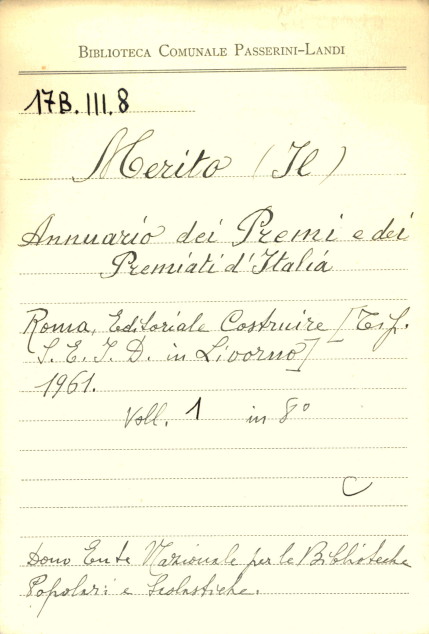 BIBLIOTECA COMUNALE PASSERINI-LANDI
17B.III.8
Merito (Il)
Annuario dei Premi e dei
Premiati d'Italia
Roma, Editoriale Costruire [Tip.
S. E. I. D. in Livorno]
1961.
Voll. 1 in 8°
C
Dono Ente Nazionale per le Biblioteche
Popolari e Scolastiche.